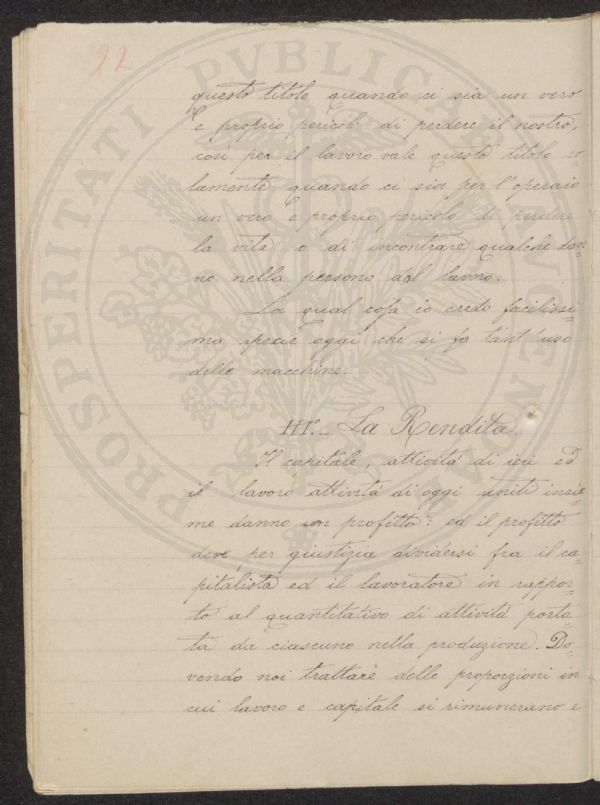 22
questo titolo quando ci sia un vero
e proprio pericolo di perdere il nostro,
così per il lavoro vale questo titolo so-
lamente quando ci sia per l'operaio
un vero e proprio pericolo di perdere
la vita o di incontrare qualche dan-
no nella persona dal lavoro.
La qual cosa io credo facilissi-
ma specie oggi che si fa tant'uso
delle macchine.
III.- La Rendita.
Il capitale, attività di ieri ed
il lavoro attività di oggi uniti insie
me danno un profitto: ed il profitto
deve per giustizia dividersi fra il ca-
pitalista ed il lavoratore in rappor-
to al quantitativo di attività porta-
ta da ciascuno nella produzione. Do-
vendo noi trattare delle proporzioni in
cui lavoro e capitale si rimunerano e
PROSPERITATI PVBLICAE